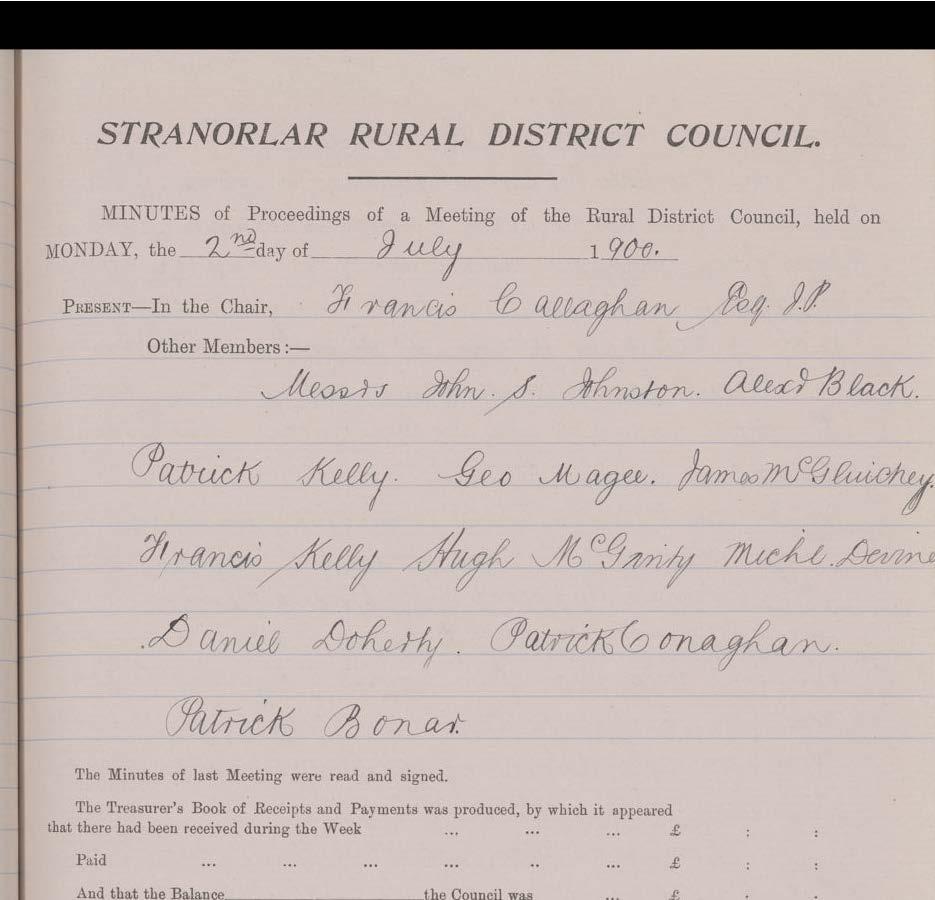 STRANORLAR RURAL DISTRICT COUNCIL.
MINUTES of Proceedings of a Meeting of the Rural District Council, held on
MONDAY, the 2nd day of July 1900.
PRESENT—In the Chair, Francis Callaghan Esq. J.P.
Other Members:—
Messrs John. S. Johnston. Alexd Black.
Patrick Kelly. Geo Magee. James McGluichey.
Francis Kelly Hugh McGinty Michl. Devine
Daniel Doherty. Patrick Conaghan.
Patrick Bonar.
The Minutes of last Meeting were read and signed.
The Treasurer's Book of Receipts and Payments was produced, by which it appeared
that there had been received during the Week ... ... ... £ : :
Paid ... ... ... ... .. ... £ : :
And that the Balance the Council was ... £ : :